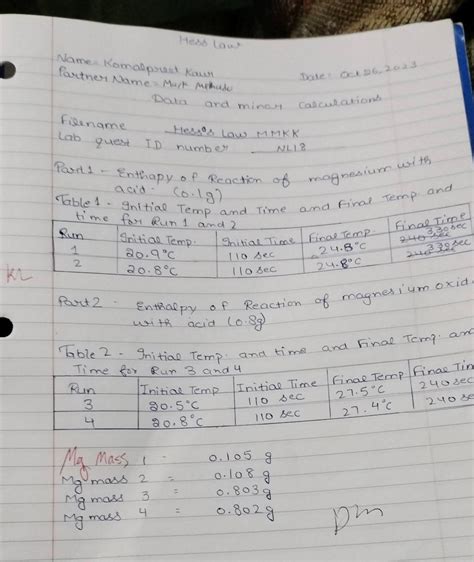 Hess Law
Name= Kamalpreet Kaur
Date: Oct 26, 2023
Partner Name = Mark
Data and minor calculations
Filename Hess's Law MMKK
Lab quest ID number NL18
Part 1 - Enthapy of Reaction of magnesium with
acid. (0.1g)
Table 1 - Initial Temp and Time and Final Temp and
time for Run 1 and 2
Run Initial Temp. Initial Time Final Temp Final Time
1 20.9°C 110 sec 24.8°C 240 338 sec
2 20.8°C 110 sec 24.8°C 240 338 sec
KL
Part 2 - Enthalpy of Reaction of magnesium oxid
with acid (0.8g)
Table 2 - Initial Temp. and time and Final Temp. an
Time for Run 3 and 4
Run Initial Temp Initial Time Final Temp Final Tim
3 20.5°C 110 sec 27.5°C 240 sec
4 20.8°C 110 sec 27.4°C 240 se
Mg Mass 1 = 0.105 g
Mg mass 2 = 0.108 g
Mg mass 3 = 0.803 g
Mg mass 4 = 0.802 g